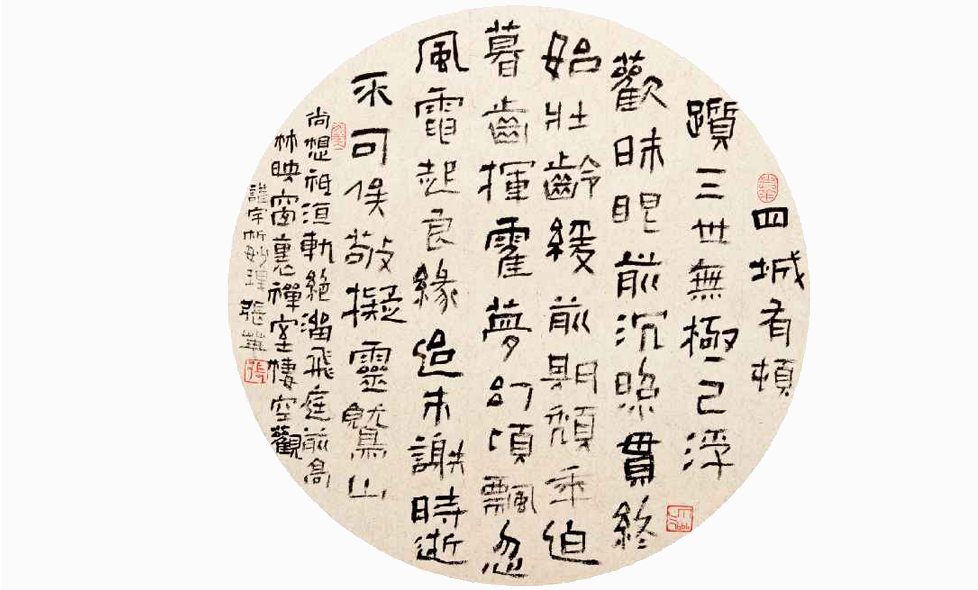 四城有頓
躓三世無極已浮
歡昧眼前沉照貫終
始壯齡緩前期頹年迫
暮齒揮霍夢幻頃飄忽
風電起良緣迨未謝時逝
不可俟敬擬靈鷲山
尚想祗洹軌絕溜飛庭前高
林映窗裏禪室棲空觀
講宇析妙理 張華